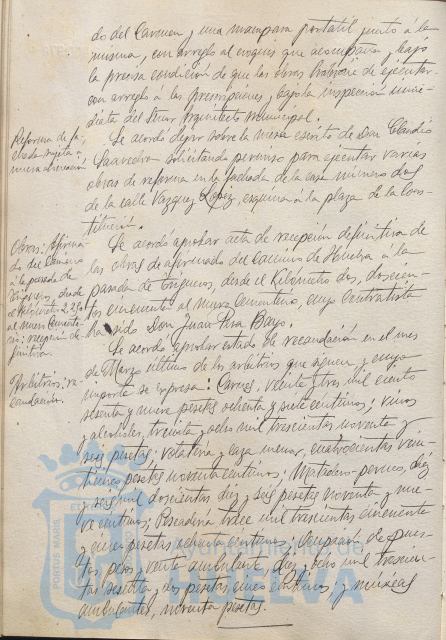 do del Carmen y una mampara portatil junto á la
misma, con arreglo al croquis que acompaña y bajo
la precisa condición de que las obras habrán de ejecutar
con arreglo á las prescripciones, bajo la inspección inme-
diata del Señor Arquitecto municipal.
Reforma de fa-
chada sujeta a
nueva alineación
Se acordó dejar sobre la mesa escrito de Don Claudio
Saavedra solicitando permiso para ejecutar varias
obras de reforma en la fachada de la casa número dos
de la calle Vazquez Lopez, esquina á la plaza de la Cons-
titución.
Obras: Afirma-
do del camino
á la parada de
Trigueros, desde
el Kilómetro 2,250
al nuevo Cemente-
rio: recepción de-
finitiva.
Se acordó aprobar acta de recepción definitiva de
las obras de afirmado del camino de Huelva á la
parada de Trigueros, desde el Kilómetro dos, doscien-
tos cincuenta al nuevo Cementerio, cuyo contratista
ha sido Don Juan Bayo.
Arbitrios: re-
caudación.
Se acordó aprobar estado de recaudación en el mes
de Marzo último de los arbitrios que siguen y cuyo
importe se expresa: Carnes, veinte tres mil ciento
sesenta y nueve pesetas ochenta y siete centimos; vinos
y alcoholes, treinta y ocho mil trescientas noventa y
seis pesetas; volatería y caza menor, cuatrocientas vein-
pesetas noventa centimos; Matadero, diez
y seis mil doscientas diez y seis pesetas noventa y nue-
ve centimos; Pescadería trece mil trescientas cincuenta
y cinco pesetas ochenta centimos; ocupación de pues-
tos, peso, venta ambulante, diez y ocho mil trescien-
tas sesenta y dos pesetas cinco centimos, y músicas
ambulantes, noventa pesetas.
PORTUS MARIS
Ayuntamiento de
HUELVA